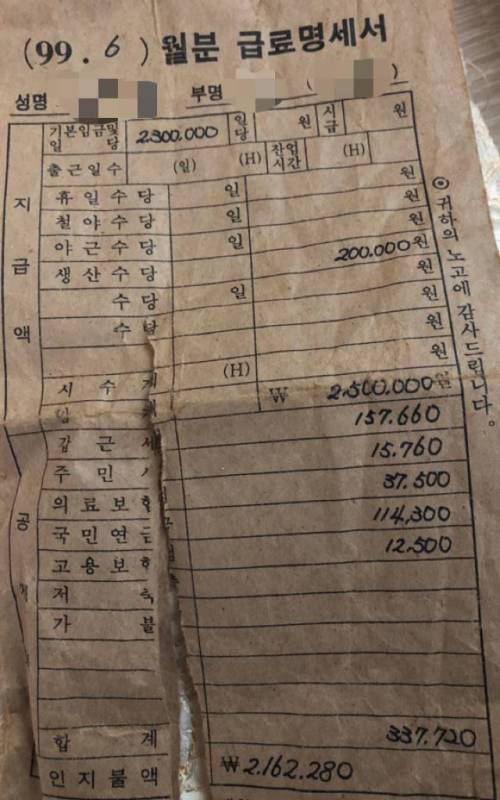 (99. 6) 월분 급료명세서
성명 부명 ( )
지급액
기본임금및 일당 2.300.000 일당 원 시급 원
출근일수 (일) (H) 작업시간 (H)
휴일수당 일 원
철야수당 일 원
야근수당 일 200.000원
생산수당 원
수당 일 원
수당 원
(H) 원
시수계 ₩ 2.500.000원
공
157.660
갑근세 15.760
주민 37.500
의료보험 114,300
국민연금 12.500
고용보험
저축
가불
합계 337.720
인지불액 ₩2.162.280
◎ 귀하의 노고에 감사드립니다.